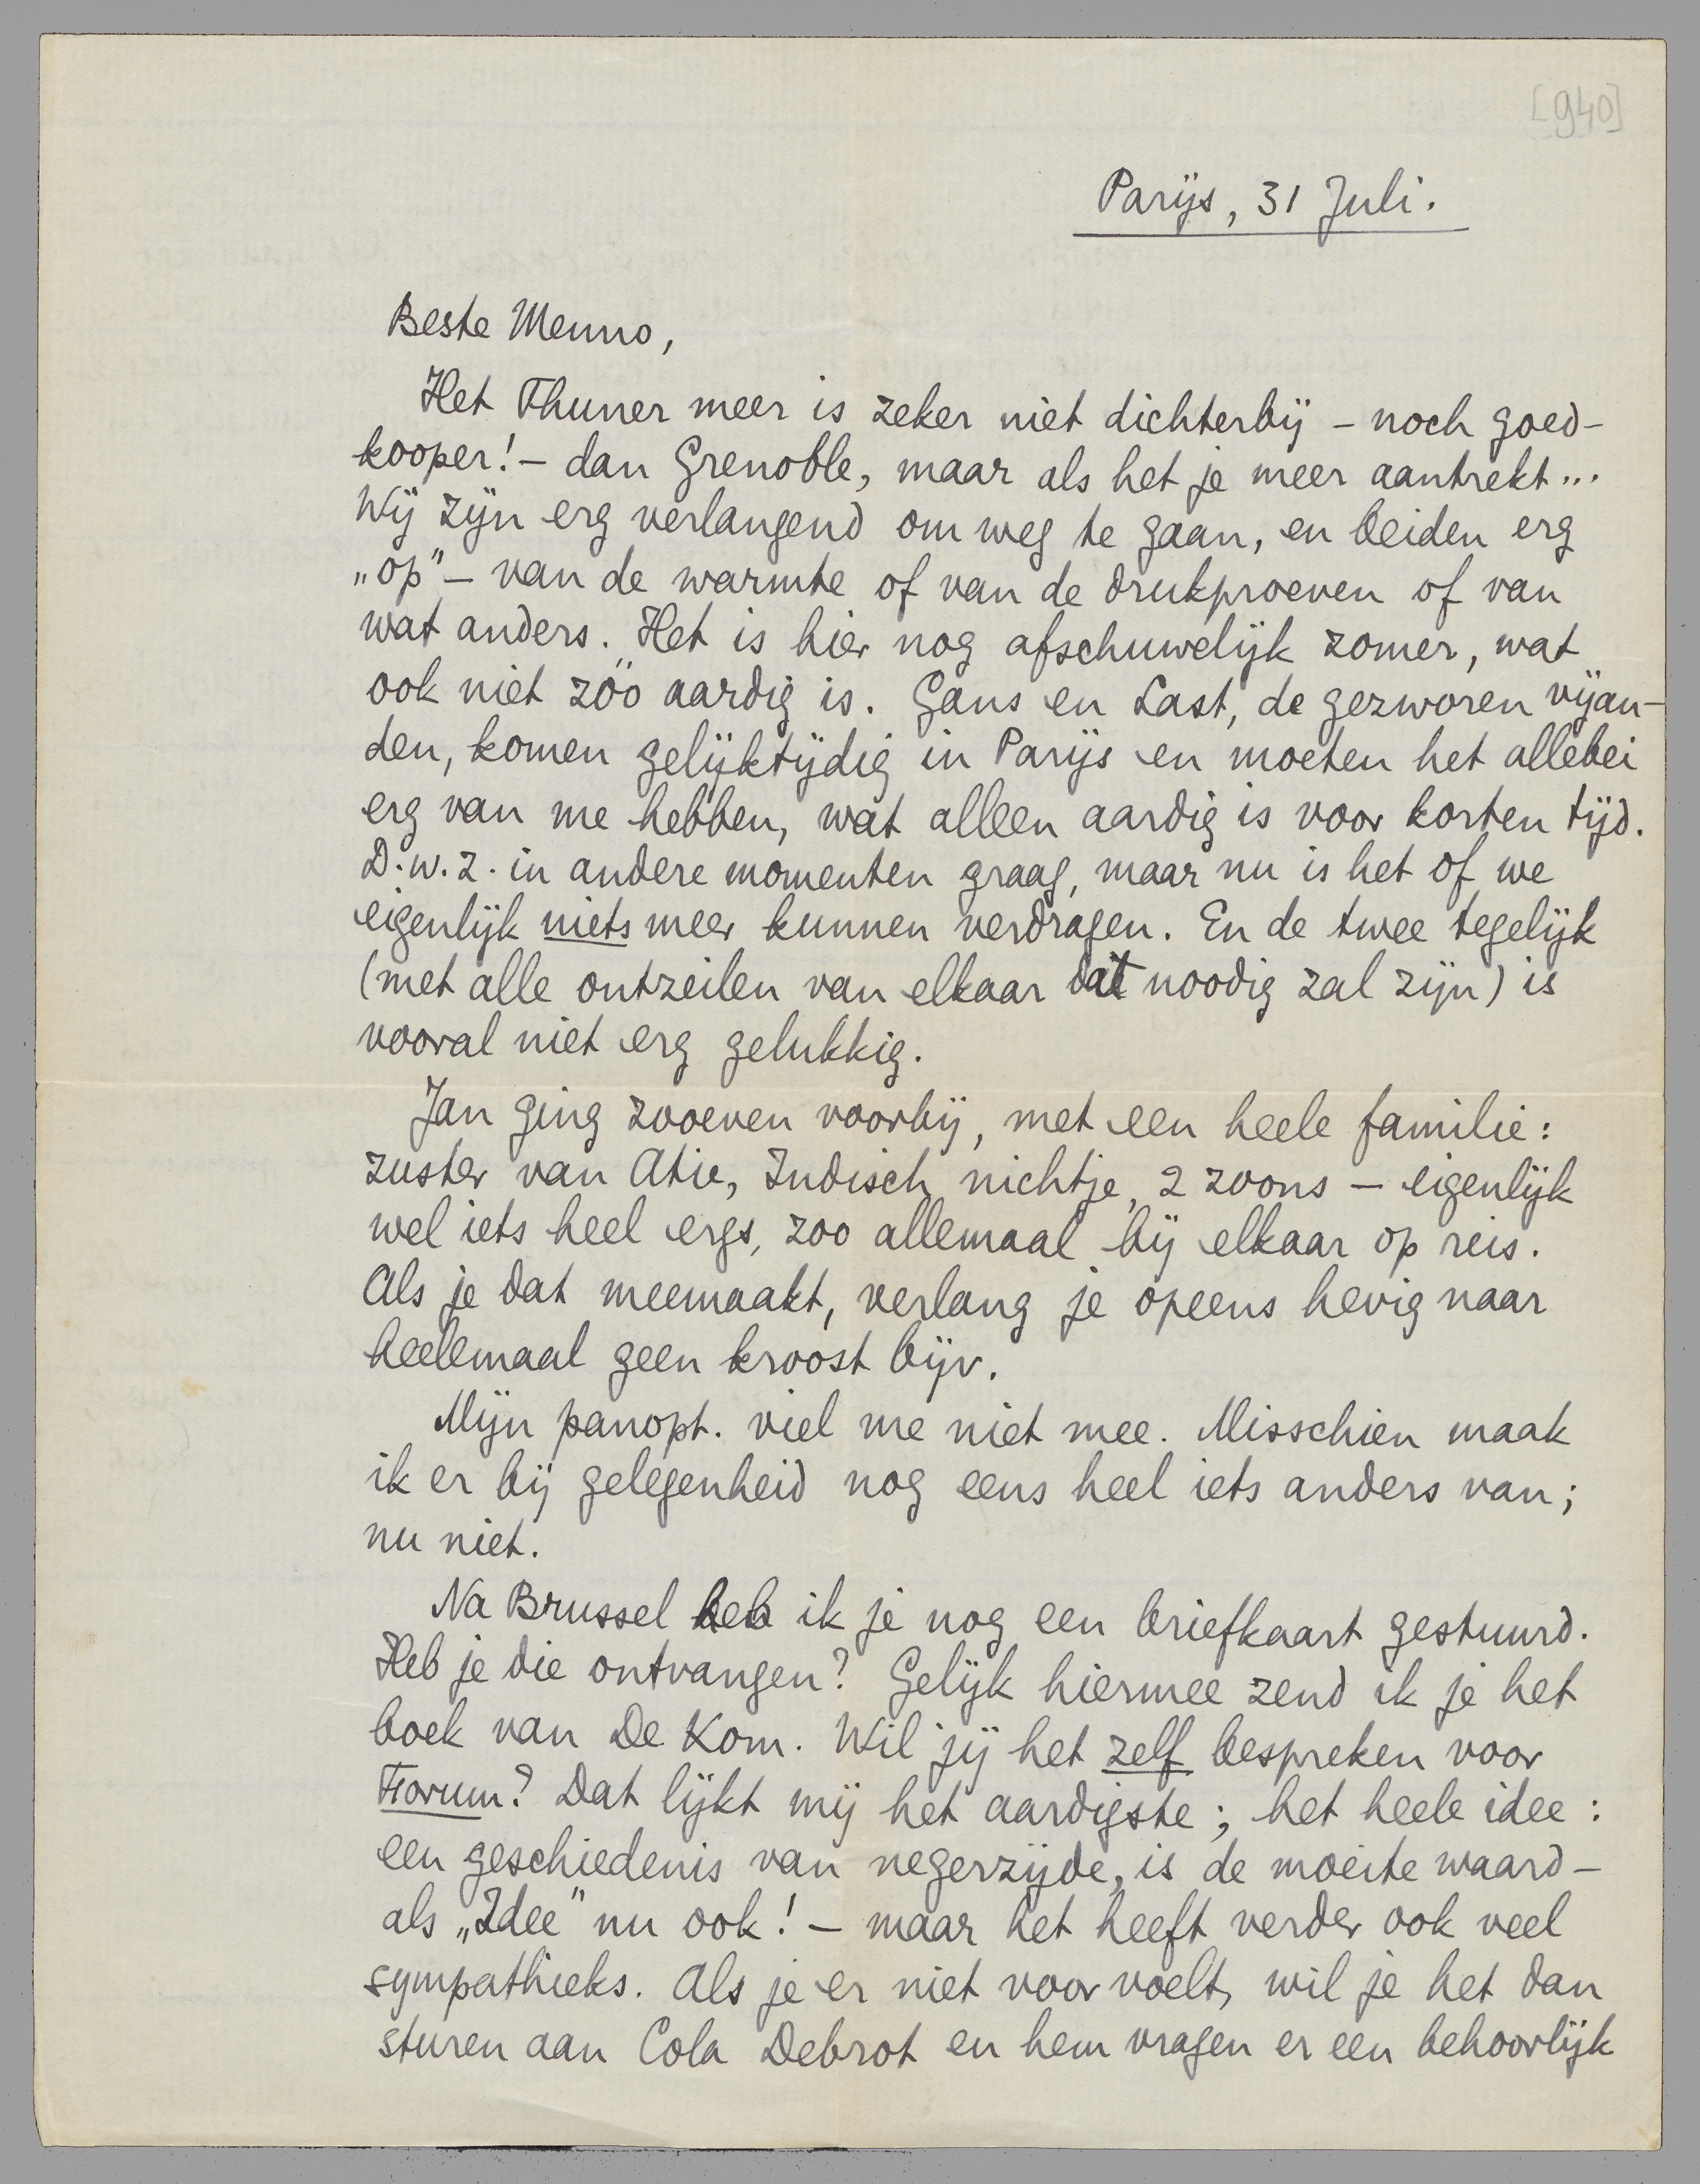 [940]
Parijs, 31 Juli.
Beste Menno,
Het Thuner meer is zeker niet dichterbij – noch goed-
kooper! – dan Grenoble, maar als het je meer aantrekt...
Wij zijn erg verlangend om weg te gaan, en beiden erg
„op” – van de warmte of van de drukproeven of van
wat anders. Het is hier nog afschuwelijk zomer, wat
ook niet zóó aardig is. Gans en Last, de gezworen vijan-
den, komen gelijktijdig in Parijs en moeten het allebei
erg van me hebben, wat alleen aardig is voor korten tijd.
D.w.z. in andere momenten graag, maar nu is het of we
eigenlijk niets meer kunnen verdragen. En de twee tegelijk
(met alle ontzeilen van elkaar dat noodig zal zijn) is
vooral niet erg gelukkig.
Jan ging zooeven voorbij, met een heele familie:
zuster van Atie, Indisch nichtje, 2 zoons – eigenlijk
wel iets heel ergs, zoo allemaal bij elkaar op reis.
Als je dat meemaakt, verlang je opeens hevig naar
heelemaal geen kroost bijv.
Mijn panopt. viel me niet mee. Misschien maak
ik er bij gelegenheid nog eens heel iets anders van;
nu niet.
Na Brussel heb ik je nog een briefkaart gestuurd.
Heb je die ontvangen? Gelijk hiermee zend ik je het
boek van De Kom. Wil jij het zelf bespreken voor
Forum? Dat lijkt mij het aardigste; het heele idee:
een geschiedenis van negerzijde, is de moeite waard –
als „Idee” nu ook! – maar het heeft verder ook veel
sympathieks. Als je er niet voor voelt, wil je het dan
sturen aan Cola Debrot en hem vragen er een behoorlijk